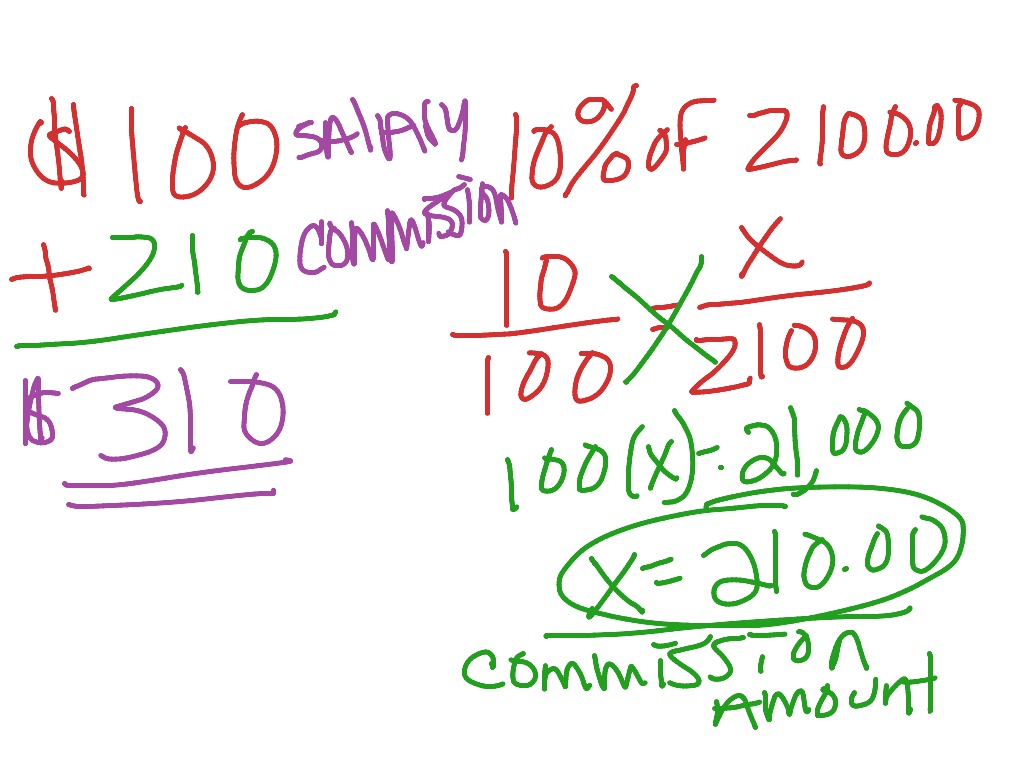 $ 100 SAlARY
+ 210 commission
$ 310
10% of 2100.00
10/100 = x/2100
100(x) = 21,000
x = 210.00
commission
Amount